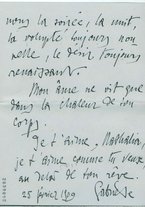 nous la soirée, la nuit,
la volupté toujours nou
velle, le désir toujours
renaissant.
Mon âme ne vit que
dans la chaleur de ton
corps.
Je t'aime, Nathalia,
je t'aime comme tu veux
au delà de ton rêve.
25 février 1909 Gabriele